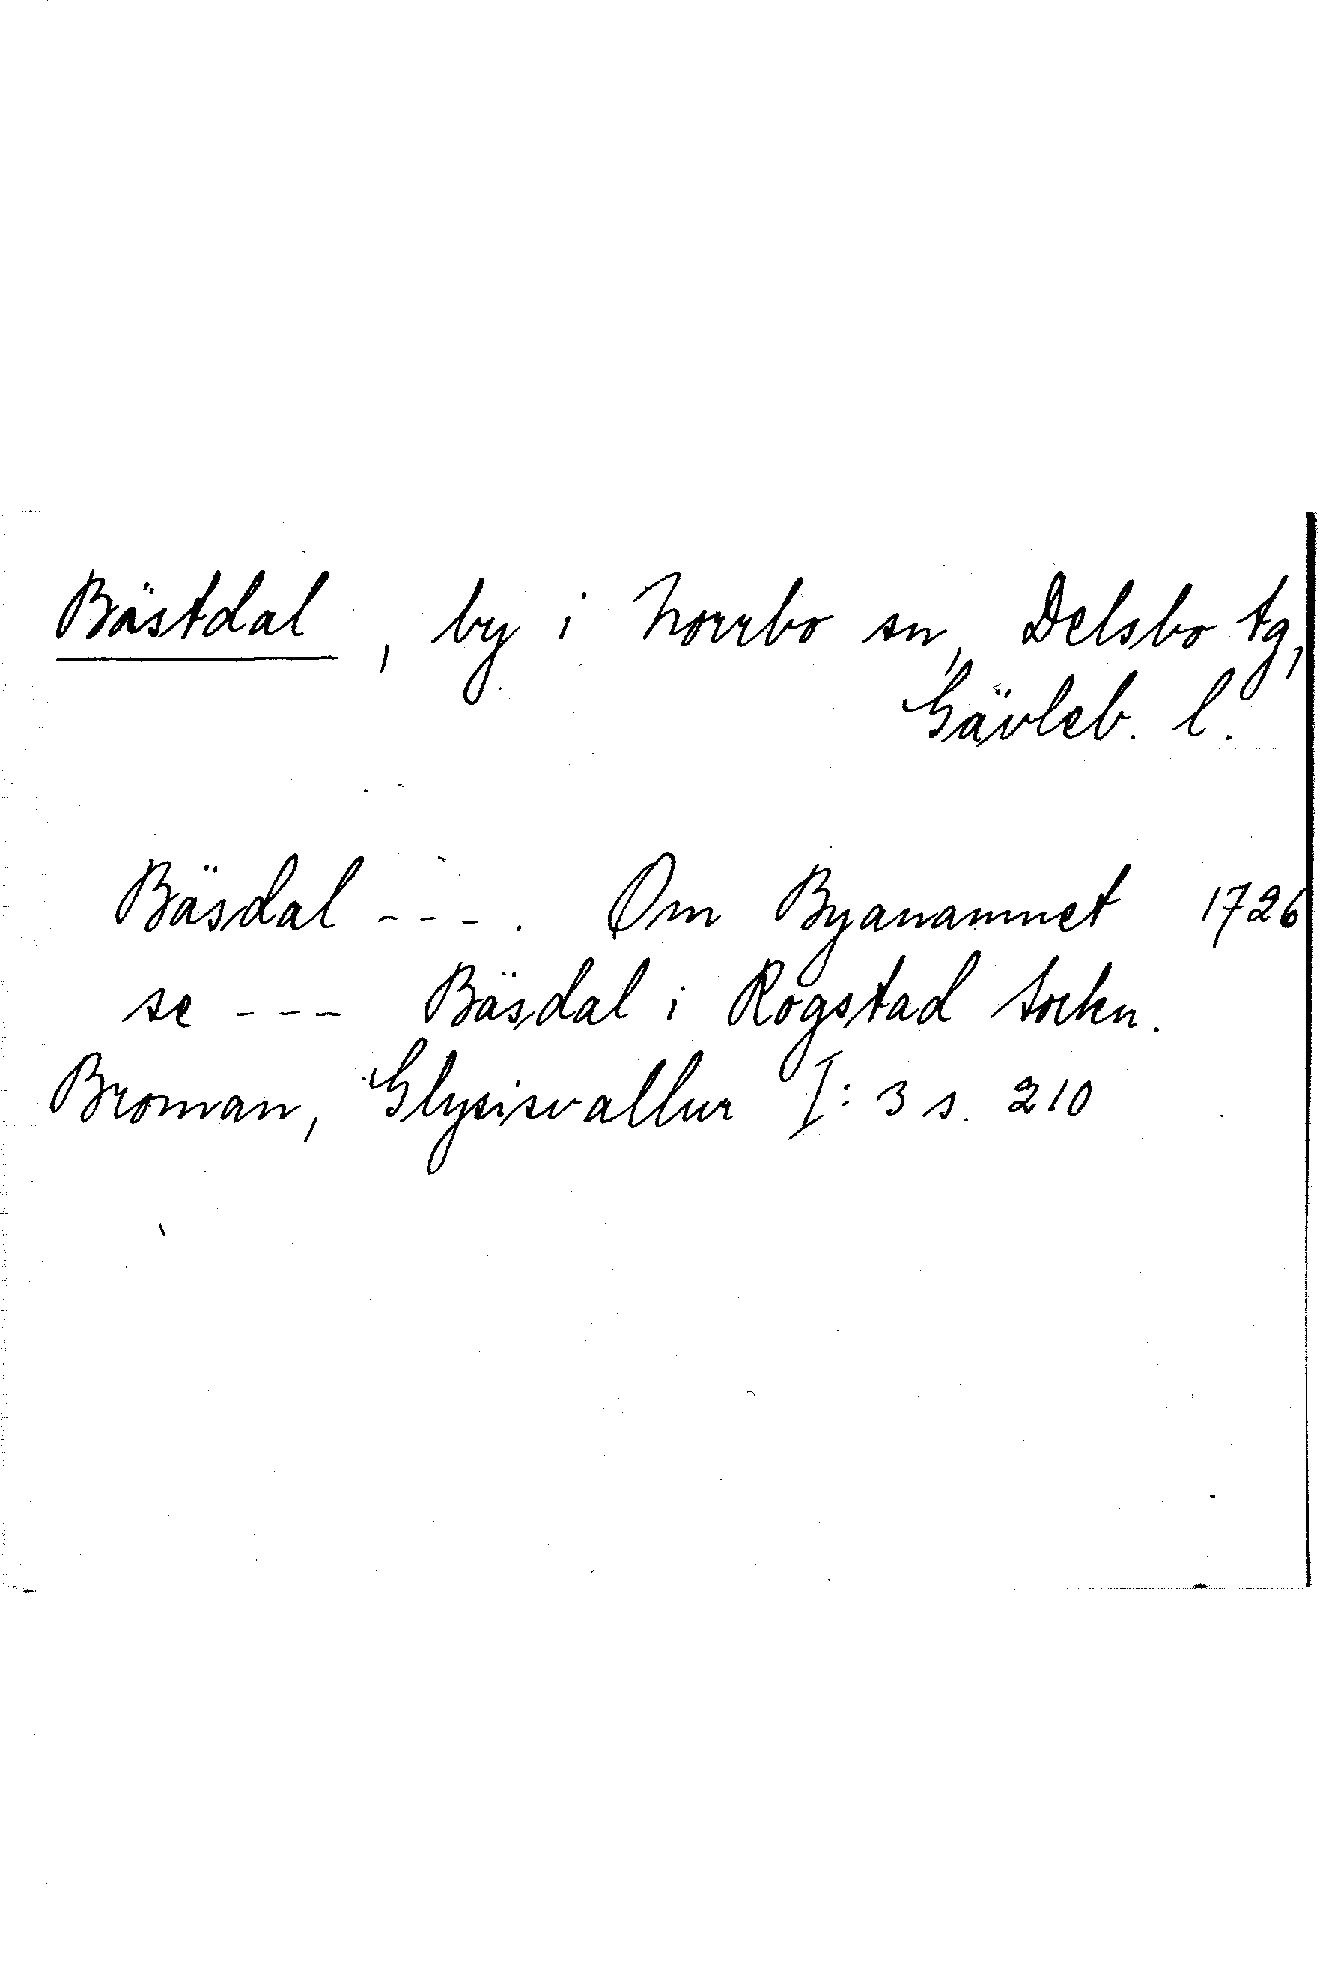 Bästdal, by i Norrbo sn, Delsbo tg,
Gävleb. l.
Bäsdal ---. Om Byanamnet 1726
se --- Bäsdal i Rogstad sockn.
Broman, Glysisvallur I:3 s. 210